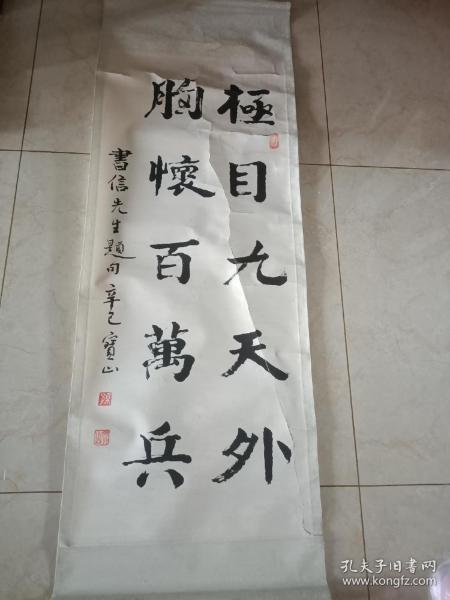 極目九天外
胸懷百萬兵
書信先生題句 辛巳 寶山
孔夫子旧书网
www.kongfz.com